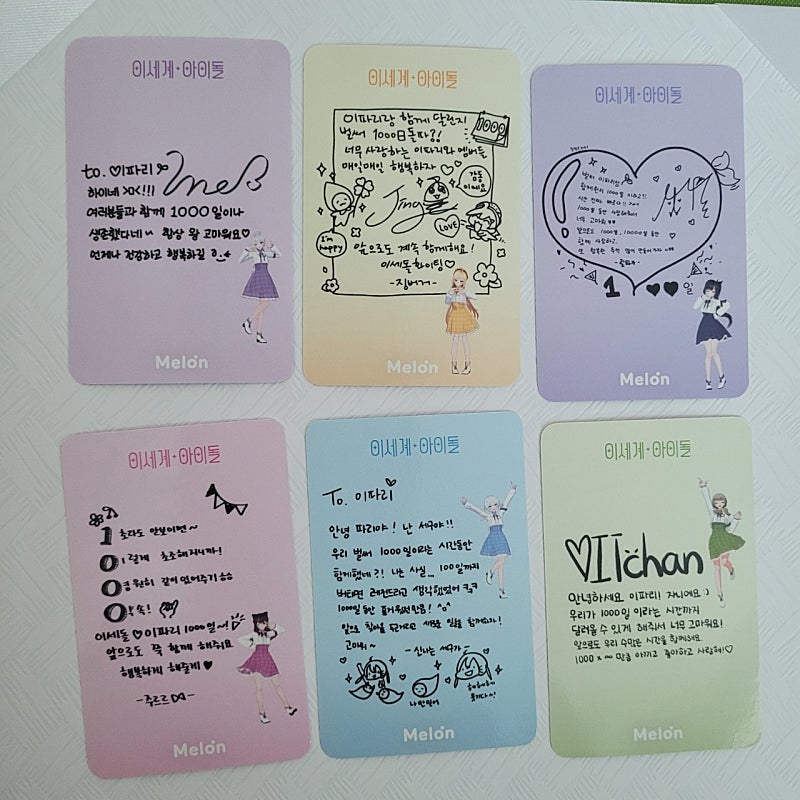 이세계·아이돌
to. ♡이파리
하이네 xx!!!
여러분들과 함께 1000일이나
생존했다네 항상 왕 고마워요♡
언제나 건강하고 행복하길
Melon
이세계·아이돌
이파리랑 함께 달린지
벌써 1000日돌파?!
너무 사랑하는 이파리와 멤버들
매일매일 행복하자
1000
감동
이에요
Jing
I'm
happy
LOVE
앞으로도 계속 함께해요!
이세돌 화이팅♡
-징버거-
Melon
이세계·아이돌
벌써 이파리랑
함께한지 1000일
시간 진짜
1000일 동안
너무 고마워
앞으로도 1000일, 10000일 동안
함께 사랑하고
또 행복한 추억 많이 만들어가자
1 ♥♥일
Melon
이세계·아이돌
1초라도 안보이면~
0이렇게 초조해지니까!
0영원히 같이 있어주기
0약속!
이세돌♡이파리 1000일~!
앞으로도 쭉 함께 해줘요
행복하게 해줄게♥
-주르르-
Melon
이세계·아이돌
To. 이파리
안녕 파리야! 난 세구야!!
우리 벌써 1000일이라는 시간동안
함께했네?! 나는 사실... 100일까지
버티면 레전드라고 생각했었어 ㅋㅋ
1000일 동안 즐거웠던만큼! ^o^
앞으로 함께할
고마워~ -신나는 세구가-
나만믿어
Melon
이세계·아이돌
♡IIchan
안녕하세요 이파리! 자니에요 :)
우리가 1000일 이라는 시간까지
달려올 수 있게 해줘서 너무 고마워요!
앞으로도 우리 수많은 시간을 함께해요.
1000 x ∞ 만큼 아끼고 좋아하고 사랑해!♡
Melon